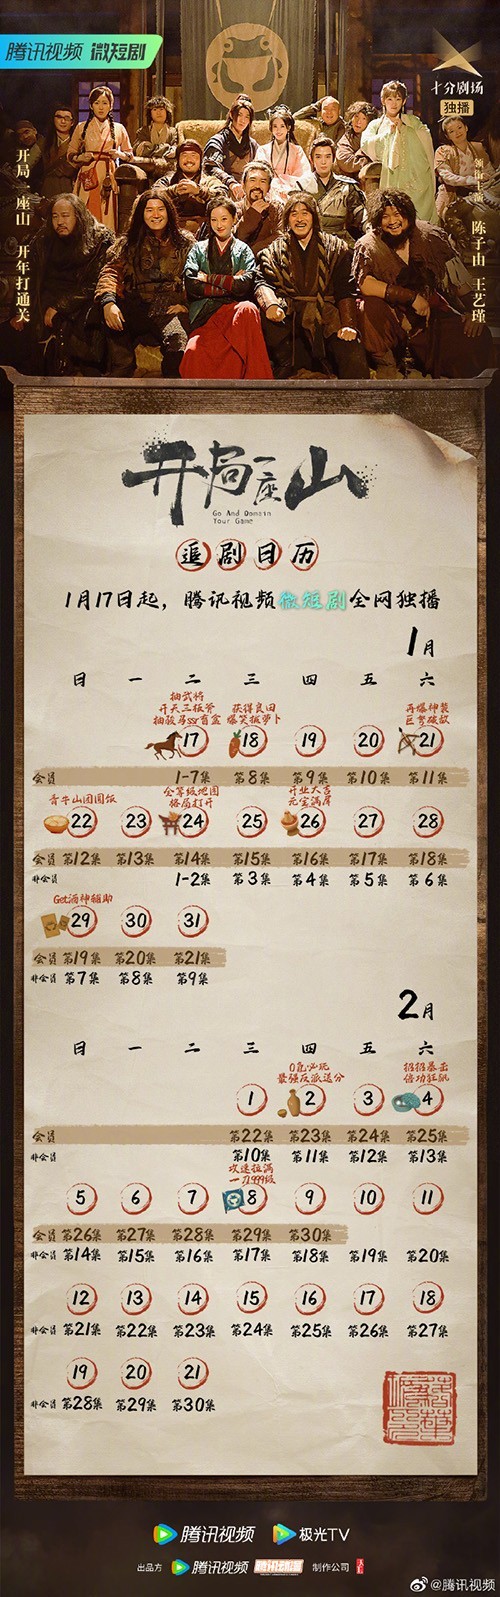 腾讯视频 微短剧
十分剧场
独播
开局一座山 开年打通关
领衔主演 陈子由 王艺瑾
开局一座山
Go And Domain
Your Game
追剧日历
1月17日起，腾讯视频微短剧全网独播
1月
日 一 二 三 四 五 六
抽武将 获得良田 再爆神装
开天三板斧 爆笑拔萝卜 巨弩破敌
抽骏马ssr盲盒
17 18 19 20 21
会员 1-7集 第8集 第9集 第10集 第11集
青牛山团圆饭 全等级地图 开业大吉
格局打开 元宝满屏
22 23 24 25 26 27 28
会员 第12集 第13集 第14集 第15集 第16集 第17集 第18集
非会员 1-2集 第3集 第4集 第5集 第6集
Get酒神辅助
29 30 31
会员 第19集 第20集 第21集
非会员 第7集 第8集 第9集
2月
日 一 二 三 四 五 六
0氪必玩 招招暴击
最强反派送分 倍功狂飙
1 2 3 4
会员 第22集 第23集 第24集 第25集
非会员 第10集 第11集 第12集 第13集
攻速拉满
一刀999级
5 6 7 8 9 10 11
会员 第26集 第27集 第28集 第29集 第30集
非会员 第14集 第15集 第16集 第17集 第18集 第19集 第20集
12 13 14 15 16 17 18
非会员 第21集 第22集 第23集 第24集 第25集 第26集 第27集
19 20 21
非会员 第28集 第29集 第30集
腾讯视频 极光TV
出品方 腾讯视频 腾讯动漫 制作公司
@腾讯视频